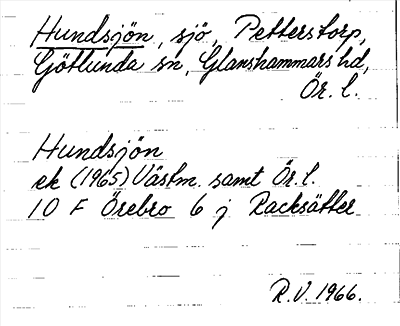 Hundsjön, sjö, Petterstorp,
Götlunda sn, Glanshammars hd,
Ör. l.
Hundsjön
ek (1965) Västm. samt Ör. l.
10 F Örebro 6 j Racksätter
R.V. 1966.